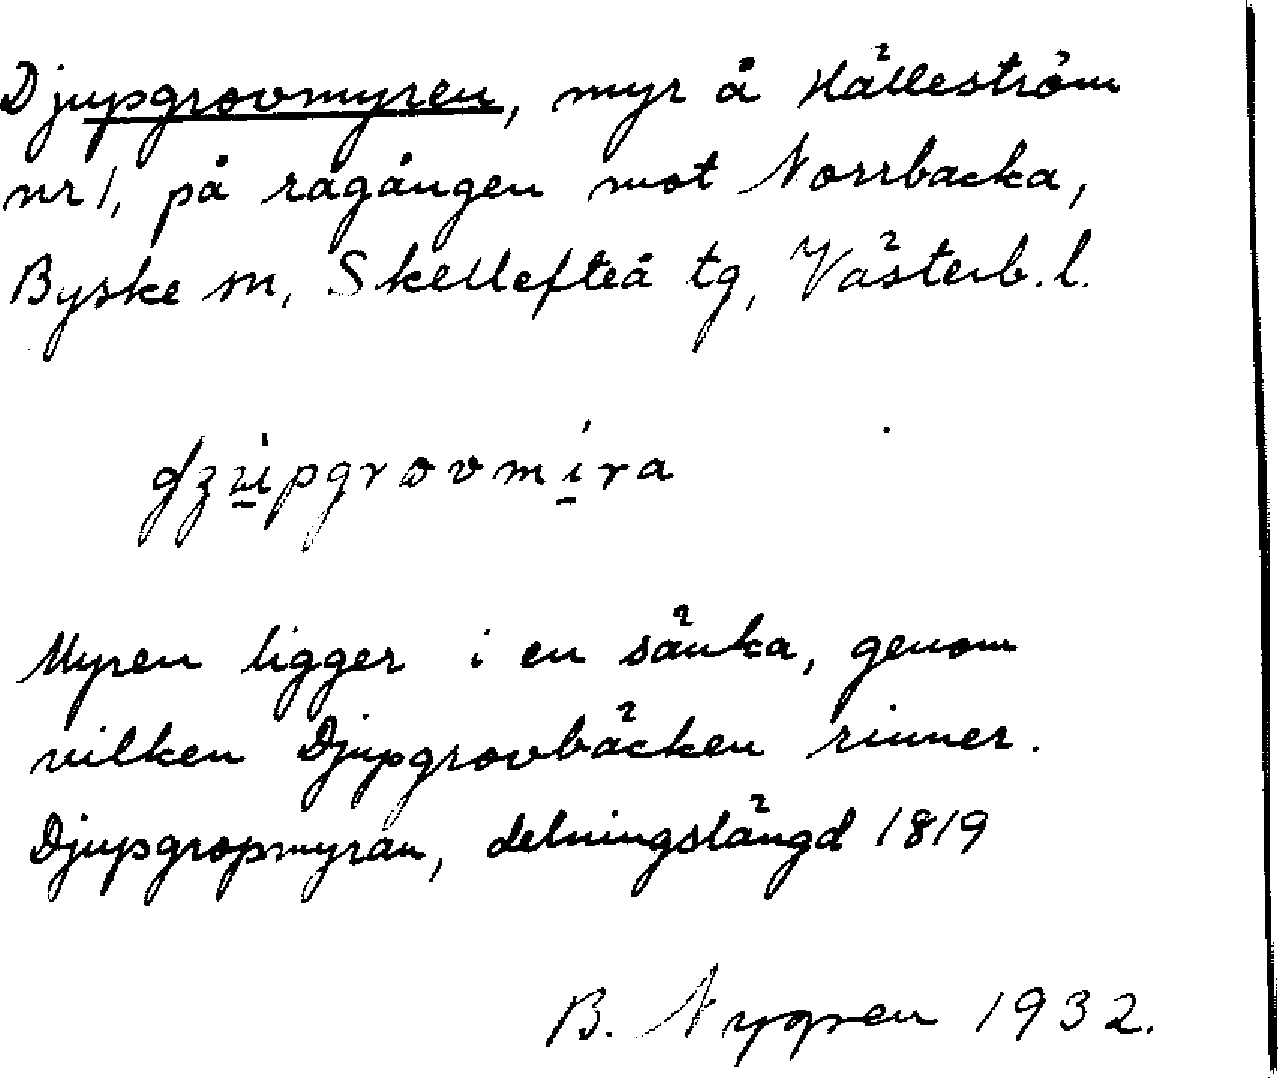 Djupgrovmyren, myr å Hälleström
nr 1, på rågången mot Norrbacka,
Byske sn, Skellefteå tg, Västerb. l.
Myren ligger i en sänka, genom
vilken Djupgrovbäcken rinner.
Djupgropmyran, delningslängd 1819
B. Nygren 1932.